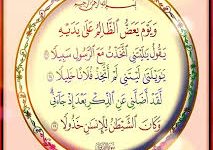 بسم الله الرحمن الرحيم
وَيَوْمَ يَعَضُّ الظَّالِمُ عَلَىٰ يَدَيْهِ
يَقُولُ يَلَيْتَنِى اتَّخَذْتُ مَعَ الرَّسُولِ سَبِيلًا ۝
يَوَيْلَتَىٰ لَيْتَنِى لَمْ أَتَّخِذْ فُلَانًا خَلِيلًا ۝
لَّقَدْ أَضَلَّنِى عَنِ الذِّكْرِ بَعْدَ إِذْ جَآءَنِى
وَكَانَ الشَّيْطَٰنُ لِلْإِنسَٰنِ خَذُولًا ۝